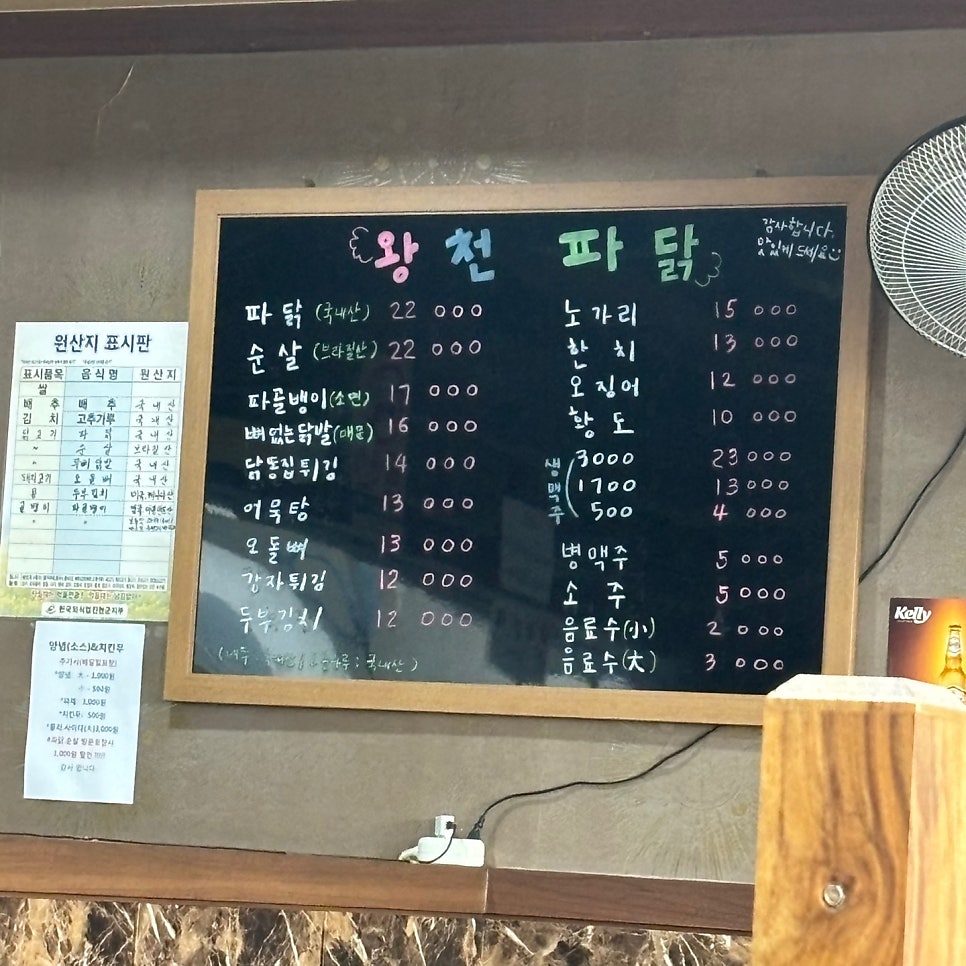 왕천파닭
감사합니다.
맛있게 드세요
파닭 (국내산) 22 000
순살 (브라질산) 22 000
파골뱅이(소면) 17 000
뼈없는닭발(매운) 16 000
닭똥집튀김 14 000
어묵탕 13 000
오돌뼈 13 000
감자튀김 12 000
두부김치 12 000
노가리 15 000
한치 13 000
오징어 12 000
황도 10 000
생맥주
3000 23000
1700 13000
500 4 000
병맥주 5 000
소주 5 000
음료수(小) 2 000
음료수(大) 3 000
원산지 표시판
표시품목 음식명 원산지
쌀
배추 배추 국내산
김치 고추가루 국내산
닭고기 파닭 국내산
〃 순살 브라질산
〃 무뼈닭발 국내산
돼지고기 오돌뼈 국내산
콩 두부김치
골뱅이 파골뱅이
한국외식업진천군지부
양념(소스)&치킨무
추가시(배달및포장)
*양념 大 - 1,000원
小 - 500원
*파채 3,000원
*치킨무 500원
*콜라,사이다(大)3,000원
#파닭,순살 방문포장시
1,000원 할인
감사 합니다
Kelly